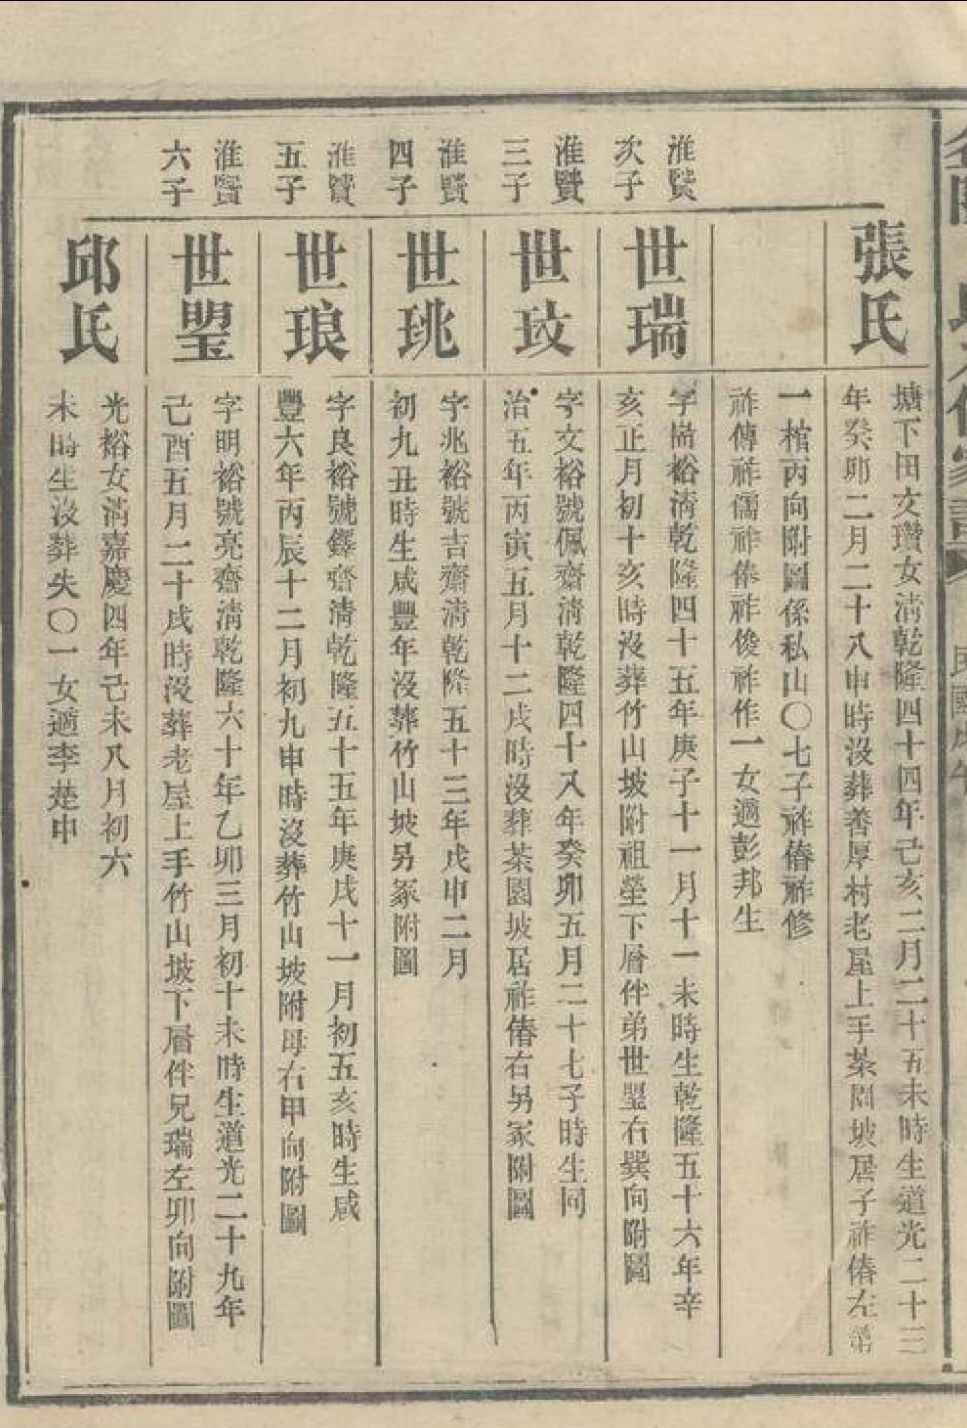 張氏
塘下田文瓚女清乾隆四十四年己亥二月二十五未時生道光二十三
年癸卯二月二十八申時沒葬善厚村老屋上手茶園坡居子祚偆左第
一棺丙向附圖係私山〇七子祚偆祚修
祚傳祚儒祚俸祚俊祚作一女適彭邦生
淮賢
次子
世瑞
字崗裕清乾隆四十五年庚子十一月十一未時生乾隆五十六年辛
亥正月初十亥時沒葬竹山坡附祖塋下層伴弟世琞右巽向附圖
淮賢
三子
世玟
字文裕號佩齋清乾隆四十八年癸卯五月二十七子時生同
治五年丙寅五月十二戌時沒葬茶園坡居祚偆右另冢附圖
淮賢
四子
世珧
字兆裕號吉齋清乾隆五十三年戊申二月
初九丑時生咸豐年沒葬竹山坡另冢附圖
淮賢
五子
世琅
字良裕號鐸齋清乾隆五十五年庚戌十一月初五亥時生咸
豐六年丙辰十二月初九申時沒葬竹山坡附母右甲向附圖
淮賢
六子
世琞
字明裕號亮齋清乾隆六十年乙卯三月初十未時生道光二十九年
己酉五月二十戌時沒葬老屋上手竹山坡下層伴兄瑞左卯向附圖
邱氏
光裕女清嘉慶四年己未八月初六
未時生沒葬失〇一女適李楚申